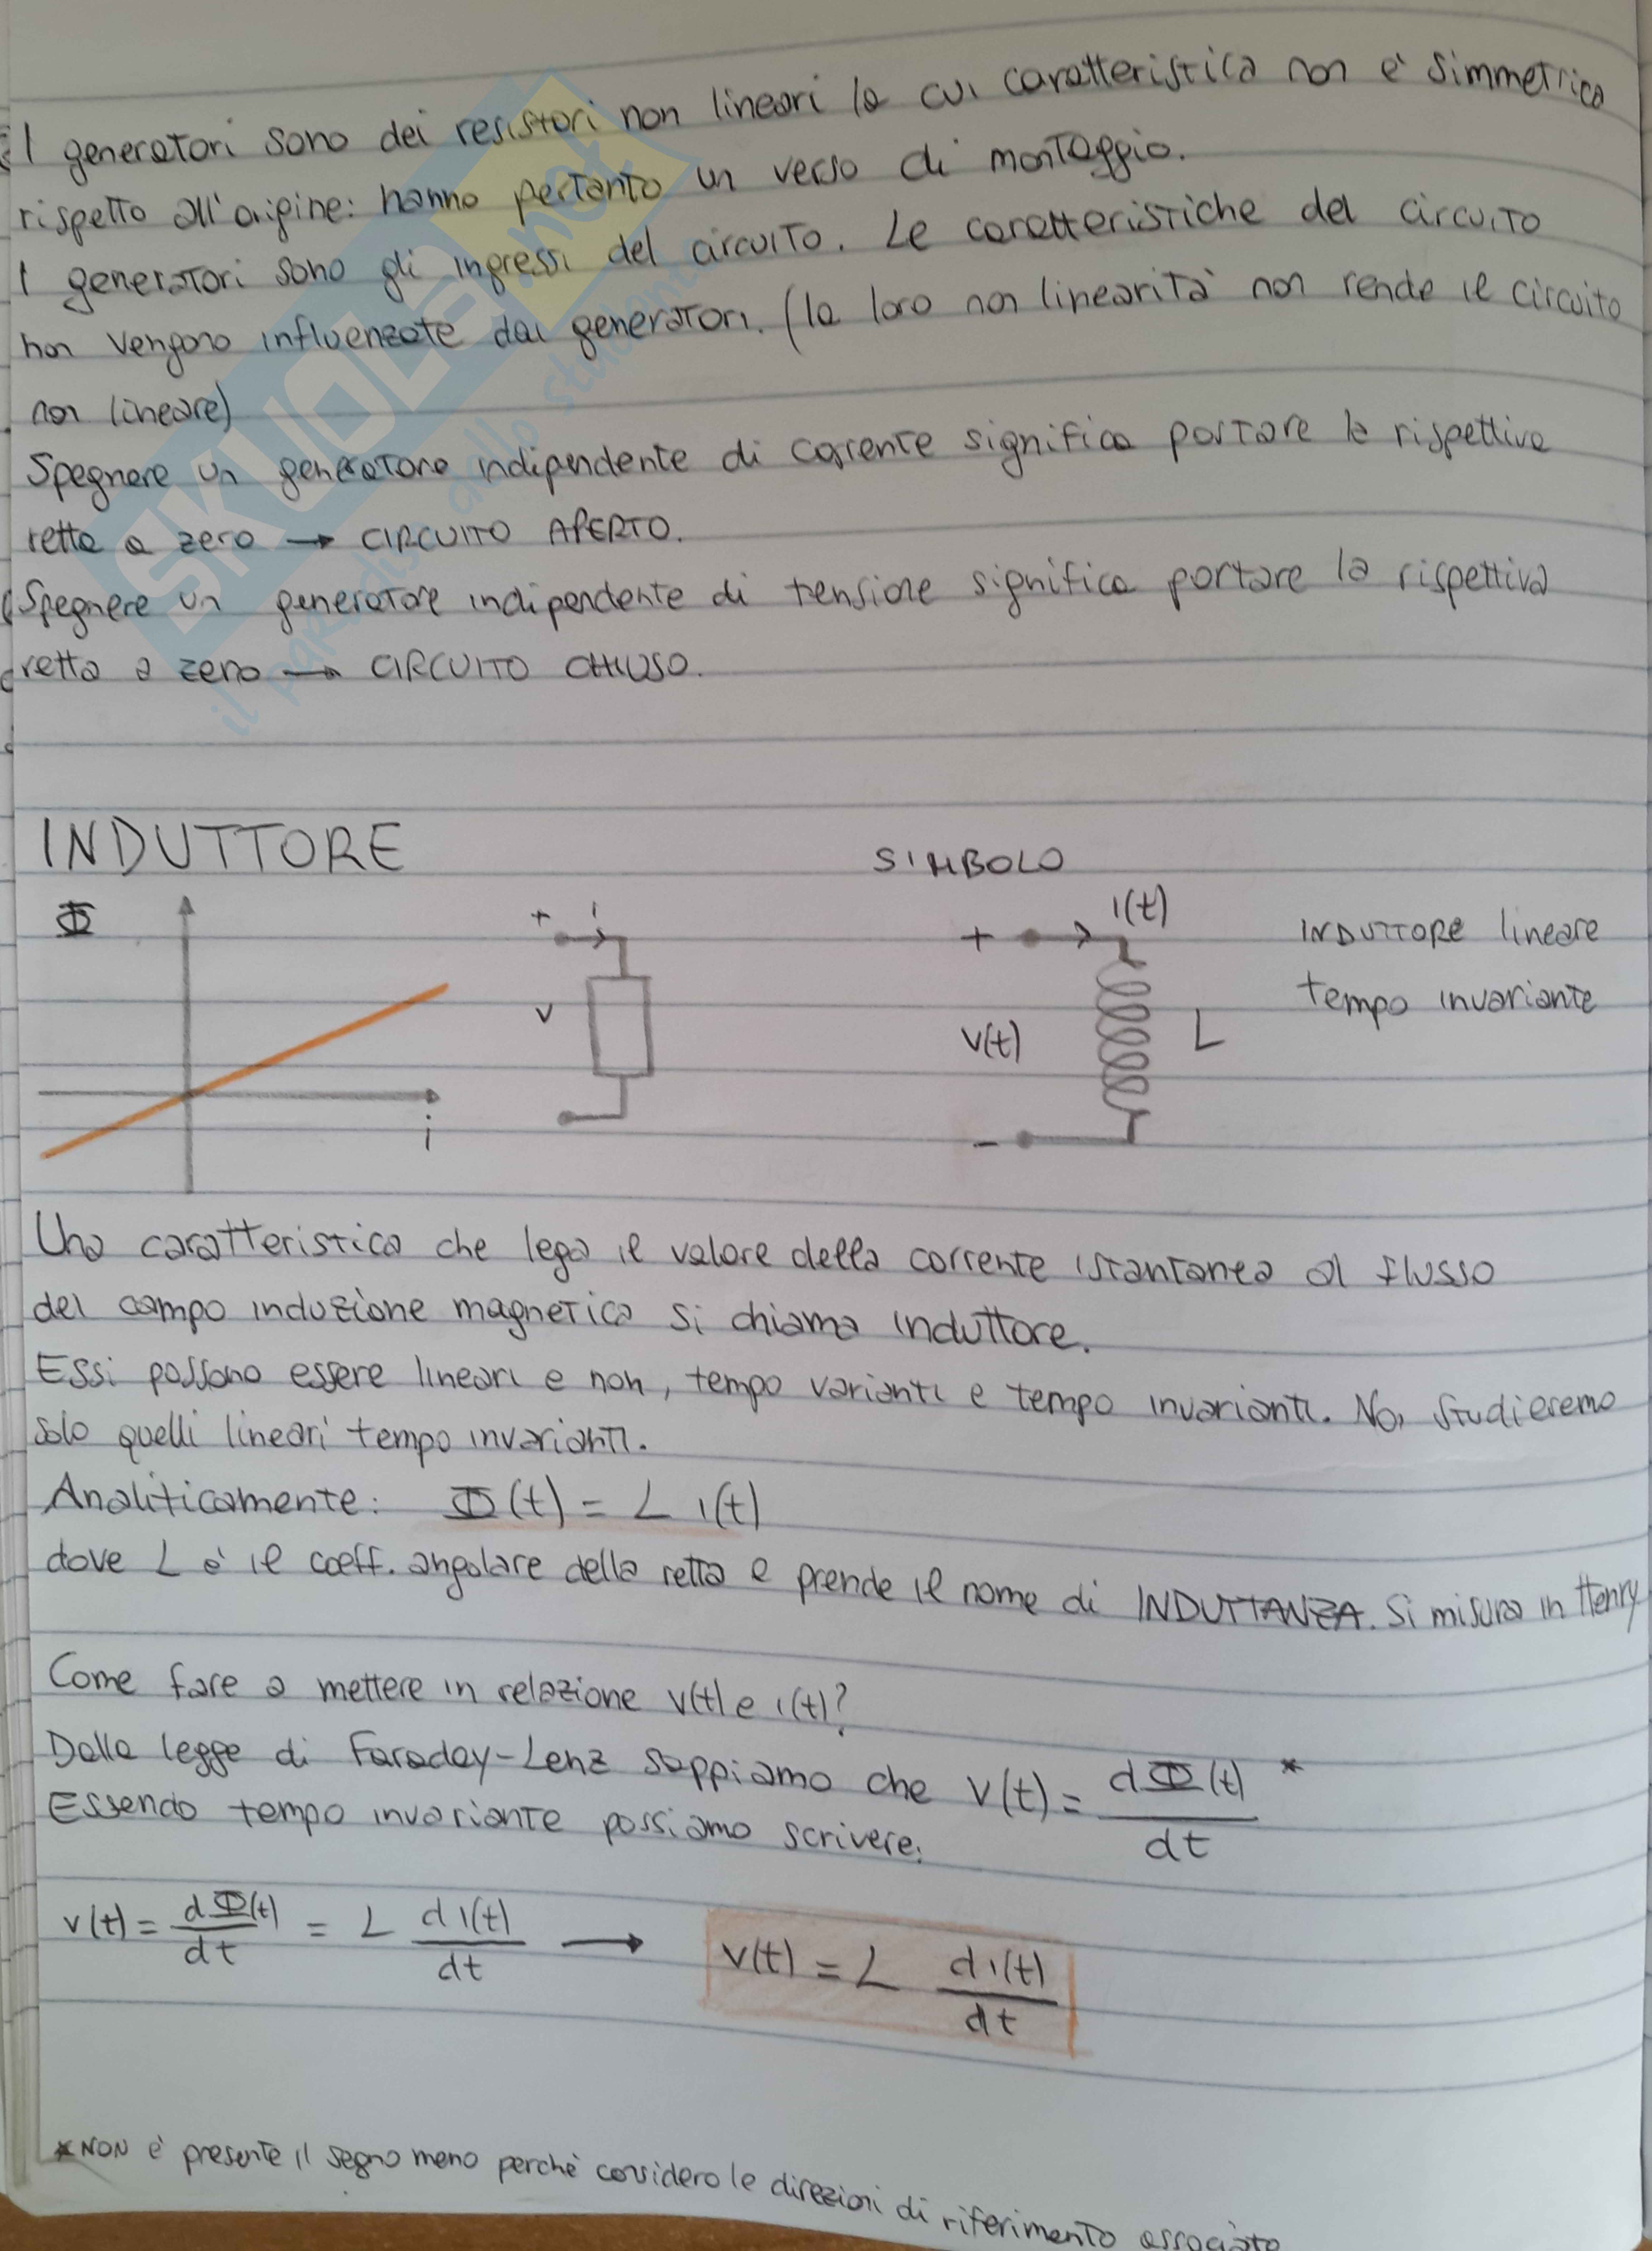 I generatori sono dei resistori non lineari la cui caratteristica non è simmetrica
rispetto all'origine: hanno pertanto un verso di montaggio.
I generatori sono gli ingressi del circuito. Le caratteristiche del circuito
non vengono influenzate dai generatori. (la loro non linearità non rende il circuito
non lineare)
Spegnere un generatore indipendente di corrente significa portare la rispettiva
retta a zero → CIRCUITO APERTO.
Spegnere un generatore indipendente di tensione significa portare la rispettiva
retta a zero → CIRCUITO CHIUSO.
SKUOLA.net
il paradiso dello studente
INDUTTORE
SIMBOLO
Φ
i
+ i
v
+ i(t)
v(t) L
-
INDUTTORE lineare
tempo invariante
Una caratteristica che lega il valore della corrente istantanea al flusso
del campo induzione magnetica si chiama induttore.
Essi possono essere lineari e non, tempo varianti e tempo invarianti. Noi studieremo
solo quelli lineari tempo invarianti.
Analiticamente: Φ(t) = L i(t)
dove L è il coeff. angolare della retta e prende il nome di INDUTTANZA. Si misura in Henry
Come fare a mettere in relazione v(t) e i(t)?
Dalla legge di Faraday-Lenz sappiamo che v(t) = dΦ(t)/dt *
Essendo tempo invariante possiamo scrivere:
v(t) = dΦ(t)/dt = L di(t)/dt → v(t) = L di(t)/dt
* NON è presente il segno meno perchè considero le direzioni di riferimento associate